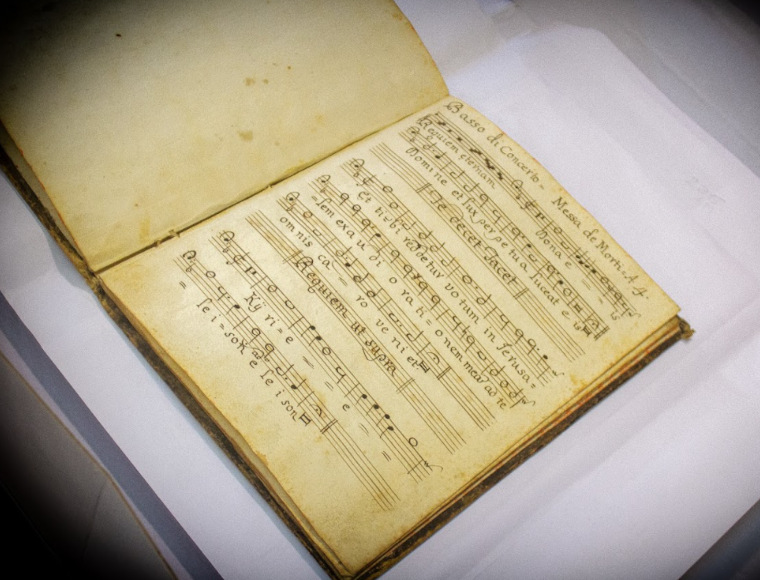 Basso di Concerto = Messa de Morti A 4.
Requiem eternam Dona e = = is
Domine et lux perpe tua luceat e is
Te decet Tacet
Et ti bi redde tur vo tum in Jerusa =
= lem exa u di o ra ti = o nem meam ad te
om nis ca = ro ve ni et
Requiem ut supra
Ky ri = e = = e = =
= le i = son e le i son